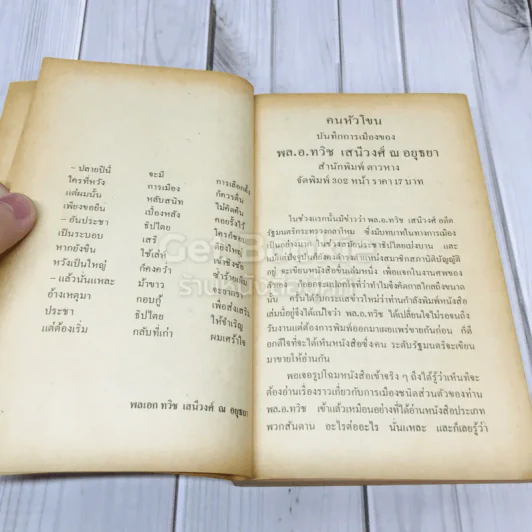 – ปลายปีนี้ จะมี การเลือกตั้ง
ใครที่หวัง การเมือง ก็ควรตื่น
แต่ผมนั้น หลับสนิท ไม่คิดคืน
เพียงขอยืน เบื้องหลัง คอยรั้งไว้
– อันประชา ธิปไตย ใครก็ชอบ
เป็นระบอบ เสรี
หากยังขืน ใช้เล่ห์ เข้าชิงชัย
หวังเป็นใหญ่ ก็คงคว่ำ
– แล้วนั่นแหละ ม้าขาว
อ้างเหตุมา กอบกู้ เพื่อส่งเสริม
ประชา ธิปไตย ให้จำเริญ
แต่ต้องเริ่ม กลับที่เก่า ผมเศร้าใจ
พลเอก ทวิช เสนีวงศ์ ณ อยุธยา
คนหัวโขน
บันทึกการเมืองของ
พล.อ.ทวิช เสนีวงศ์ ณ อยุธยา
สำนักพิมพ์ ดาวหาง
จัดพิมพ์ 302 หน้า ราคา 17 บาท
ในช่วงแรกนั้นมีข่าวว่า พล.อ.ทวิช เสนีวงศ์ อดีต
รัฐมนตรีกระทรวงกลาโหม ซึ่งมีบทบาทในทางการเมือง
เป็นอย่างมาก ในช่วงสมัยประชาธิปไตยเบ่งบาน และ
แม้แต่ปัจจุบันก็ดำรงตำแหน่งสมาชิกสภานิติบัญญัติ
อยู่ จะเขียนหนังสือขึ้นเล่มหนึ่ง เพื่อแจกในงานศพของ
นั้น ครั้นได้รับกระแสข่าวใหม่ว่าท่านกำลังพิมพ์หนังสือ
เล่มนี้อยู่จึงได้แน่ใจว่า พล.อ.ทวิช ได้เปลี่ยนใจไม่รอจนถึง
วันงานแต่ต้องการพิมพ์ออกมาเผยแพร่ขายกันก่อน ก็ดี
อกดีใจที่จะได้เห็นหนังสือซึ่งคน ระดับรัฐมนตรีจะเขียน
มาขายให้อ่านกัน
พอเจอรูปโฉมหนังสือเข้าจริง ๆ ถึงได้รู้ว่าเห็นทีจะ
ต้องอ่านเรื่องราวเกี่ยวกับการเมืองชนิดส่วนตัวของท่าน
พล.อ.ทวิช เข้าแล้วเหมือนอย่างที่ได้อ่านหนังสือประเภท
พวกสันดาน อะไรต่ออะไร นั่นแหละ และก็เลยรู้ว่า